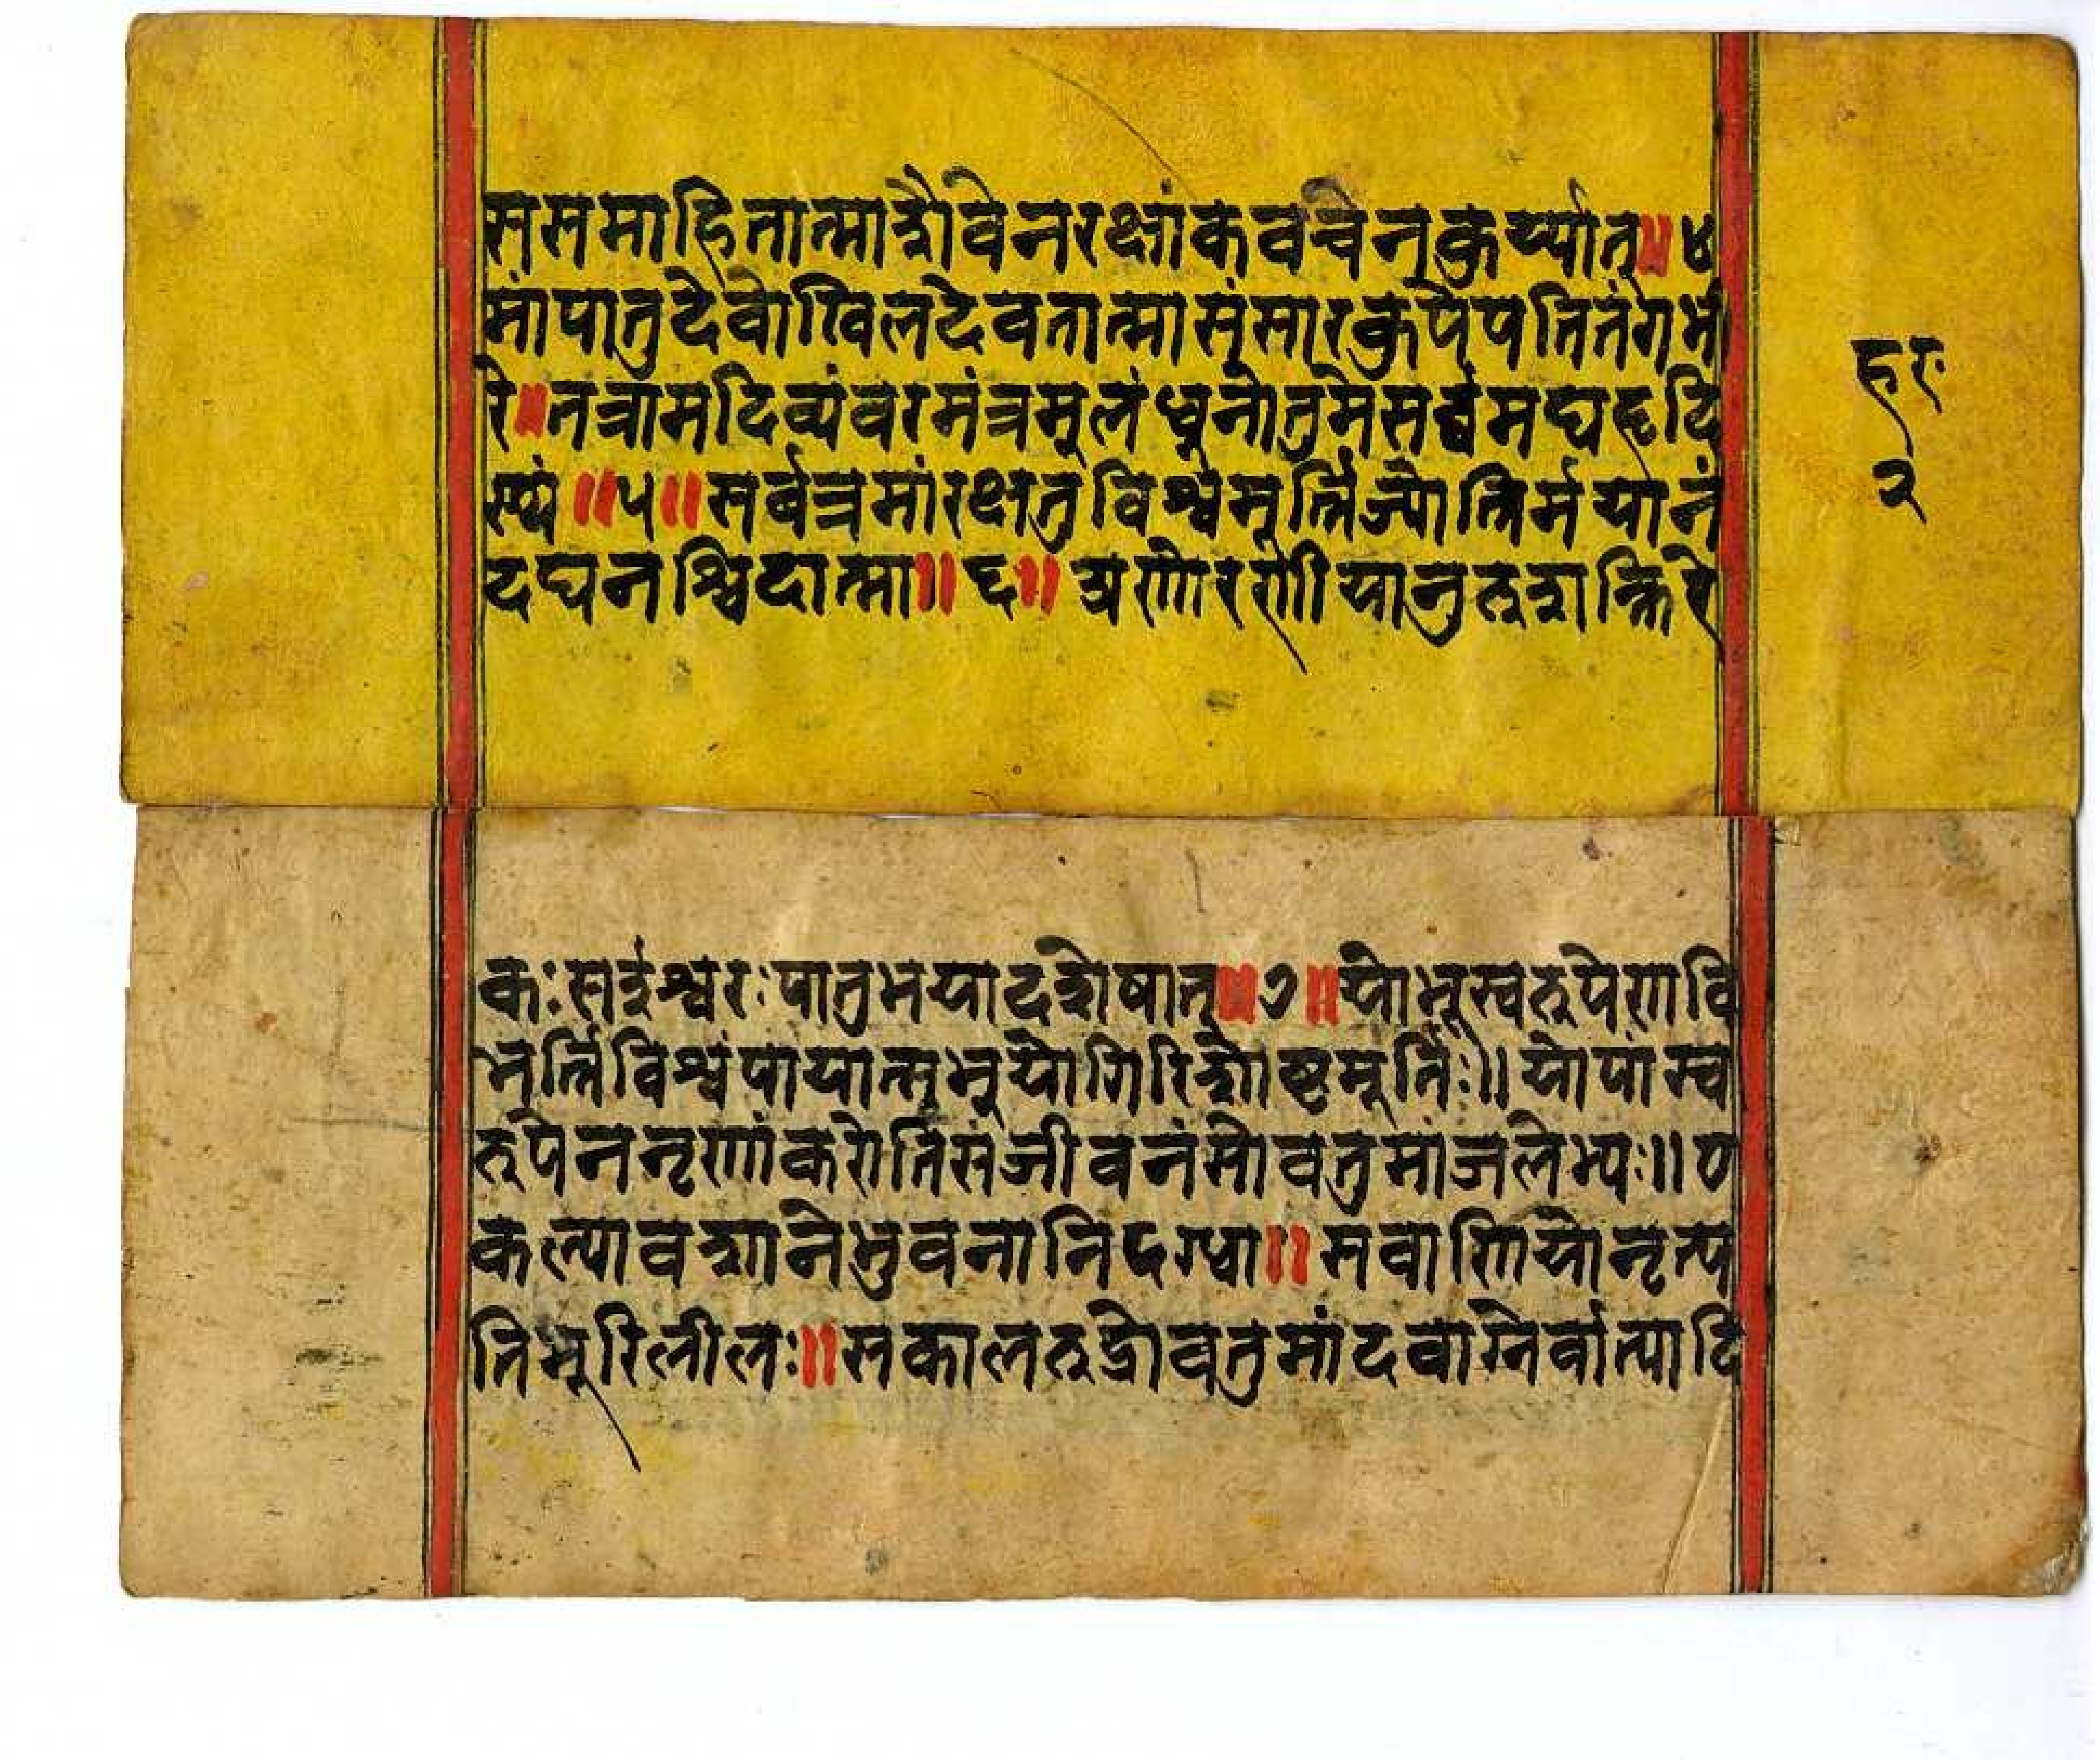 ससमाहितात्माशैवेनरक्षांकवचेनकुर्य्यात्॥४
मांपातुदेवोखिलदेवतात्मासंसारकुपेपतितंगभी
रे॥तन्नामदिव्यंवरमंत्रमूलंधुनोतुमेसर्व्वमघहृदि
स्थं॥५॥सर्वत्रमांरक्षतुविश्वमूर्त्तिर्ज्योतिर्मयानं
दघनश्चिदात्मा॥६॥अणोरणीयानुरुशक्तिरे
हर
२
कःसईश्वरःपातुभयादशेषात्॥७॥योभूस्वरुपेणवि
भर्त्तिविश्वंपायात्सभूयोगिरिशोष्टमूर्तिः॥योपांस्व
रुपेननृणांकरोतिसंजीवनंसोवतुमांजलेभ्यः॥८
कल्पावशानेभुवनानिदग्ध्वा॥सवाणियोनृत्य
तिभूरिलीलः॥सकालरुद्रोवतुमांदवाग्नेर्वात्यादि